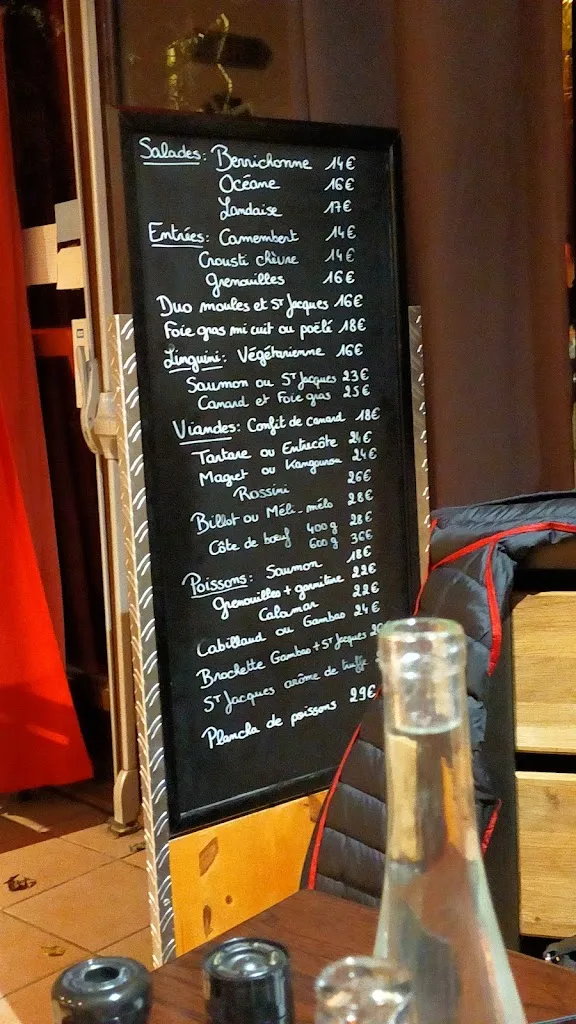 Salades: Berrichonne 14€
Océane 16€
Landaise 17€
Entrées: Camembert 14€
Crousti chèvre 14€
Grenouilles 16€
Duo moules et ST Jacques 16€
Foie gras mi cuit ou poêlé 18€
Linguini: Végétarienne 16€
Saumon ou ST Jacques 23€
Canard et Foie gras 25€
Viandes: Confit de canard 18€
Tartare ou Entrecôte 24€
Magret ou Kangourou 24€
Rossini 26€
Billot ou Méli-mélo 28€
Côte de bœuf 400g 28€
600g 36€
Poissons: Saumon 18€
Grenouilles + garniture 22€
Calamar 22€
Cabillaud ou Gambas 24€
Brochette Gambas + ST Jacques
ST Jacques arôme de truffe
Plancha de poissons 29€